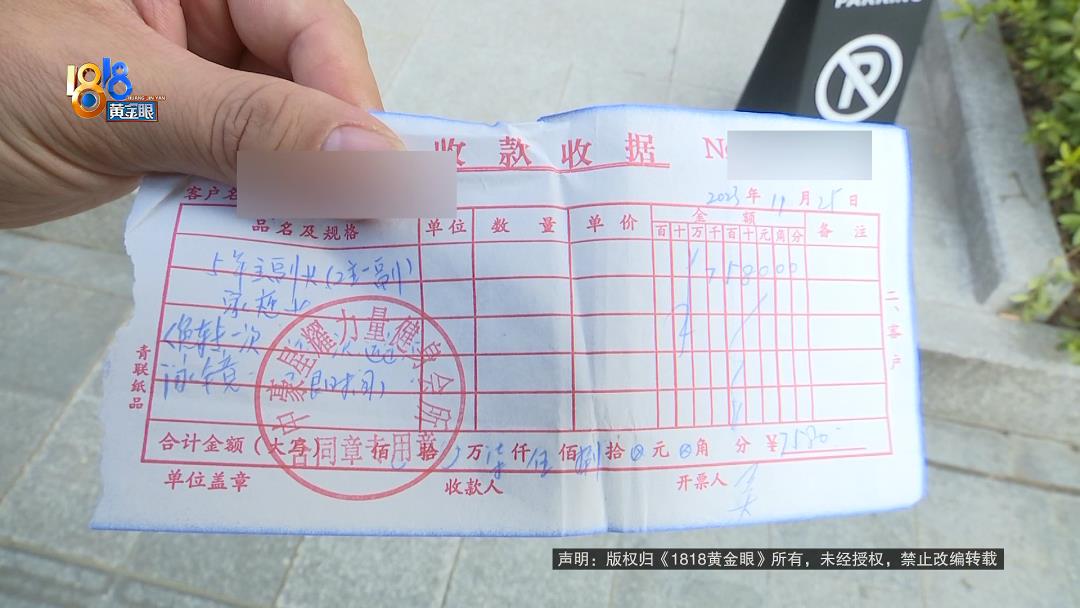 PARKING
1818
HUANG JIN YAN
黄金眼
收款收据 No
2023年11月25日
客户名
品名及规格 单位 数量 单价 金额 备注
百十万千百十元角分
5年主副卡(2主一副) 758000
免转一次
泳卡
青联纸品
二、客户
星耀力量健身会所
合同章专用章
合计金额(大写) 佰 拾 万柒仟伍佰捌拾⊗元⊗角 分 ¥7580-
单位盖章 收款人 开票人
声明：版权归《1818黄金眼》所有，未经授权，禁止改编转载